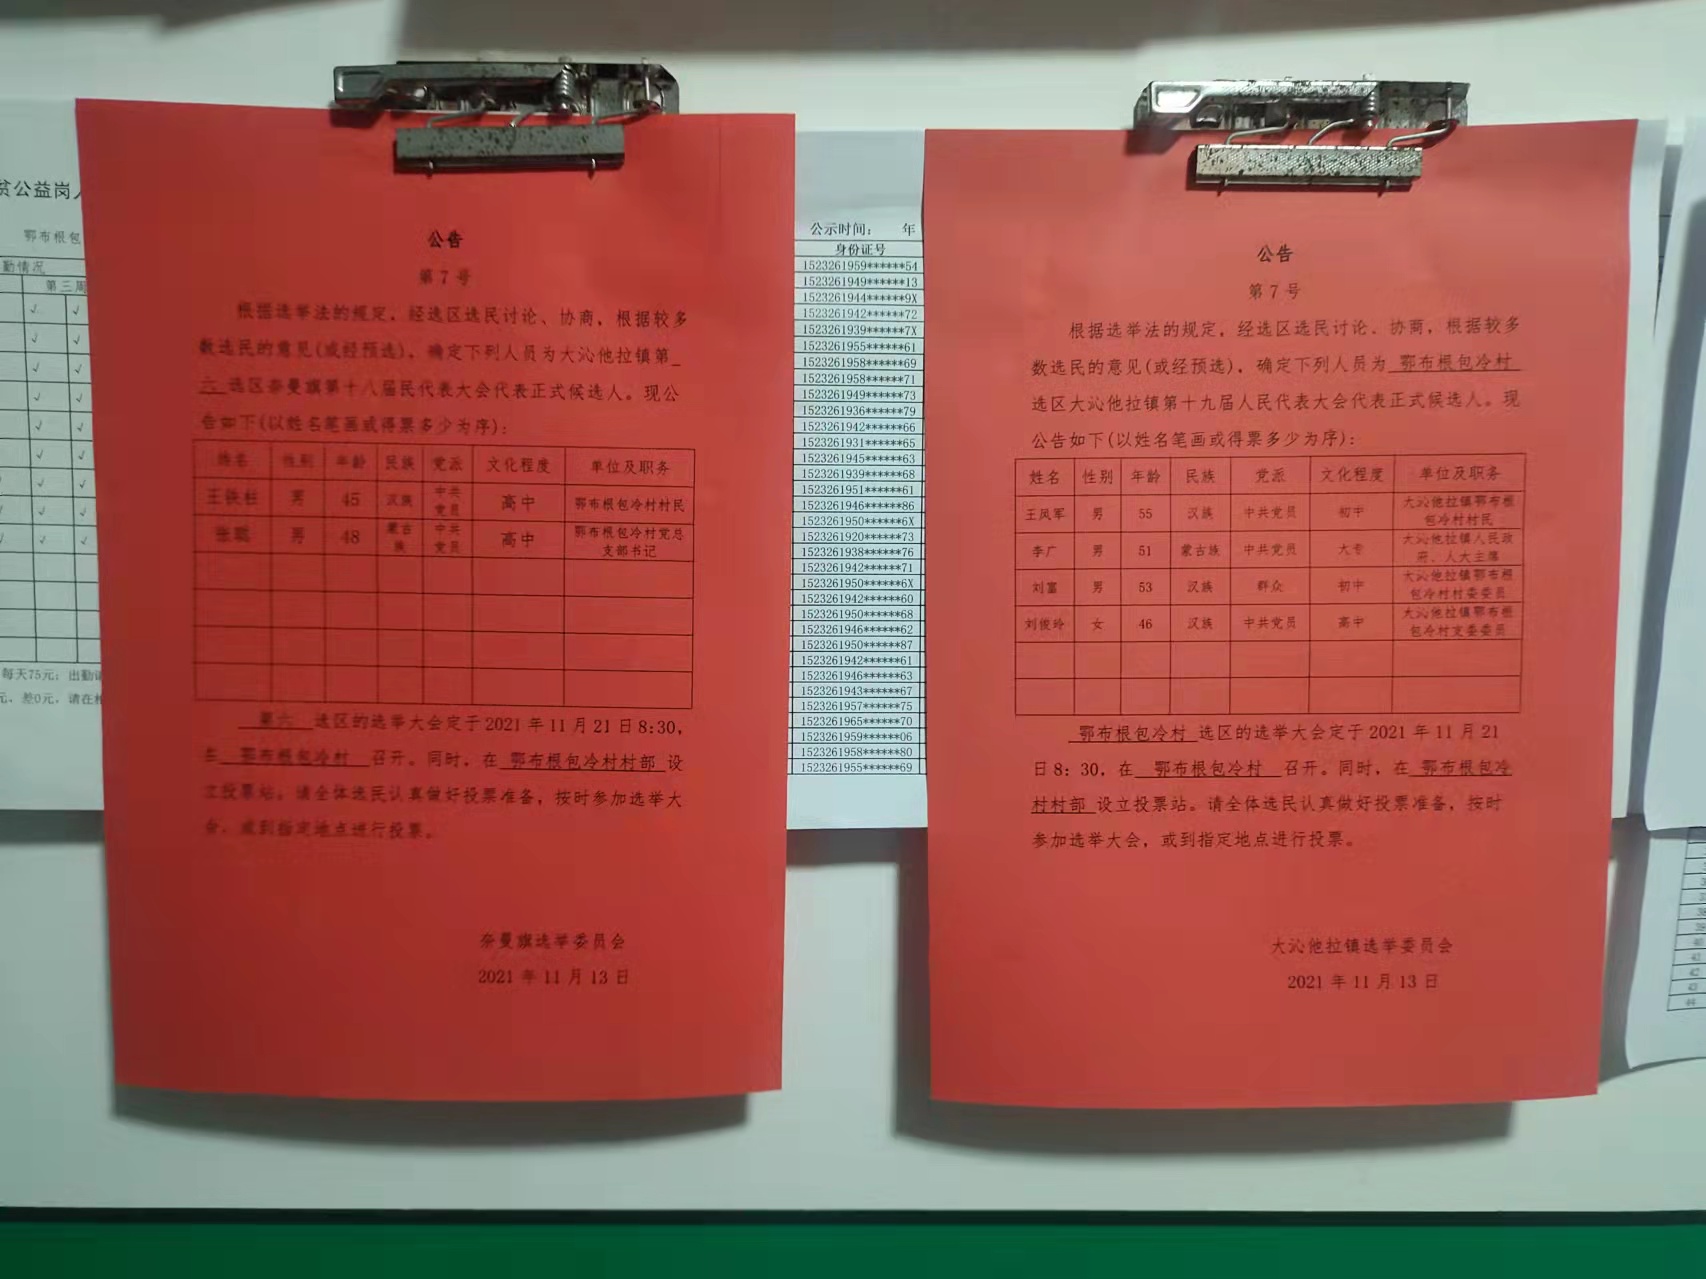 贫公益岗人
鄂布根包
勤情况
第三周
每天75元；出勤
元，差0元，请在
公告
第 7 号
根据选举法的规定，经选区选民讨论、协商，根据较多
数选民的意见(或经预选)，确定下列人员为大沁他拉镇第
六 选区奈曼旗第十八届民代表大会代表正式候选人。现公
告如下(以姓名笔画或得票多少为序)：
姓名 性别 年龄 民族 党派 文化程度 单位及职务
王铁柱 男 45 汉族 中共党员 高中 鄂布根包冷村村民
张聪 男 48 蒙古族 中共党员 高中 鄂布根包冷村党总支部书记
第六 选区的选举大会定于 2021 年 11 月 21 日 8:30，
在 鄂布根包冷村 召开。同时，在 鄂布根包冷村村部 设
立投票站。请全体选民认真做好投票准备，按时参加选举大
会，或到指定地点进行投票。
奈曼旗选举委员会
2021 年 11 月 13 日
公示时间： 年
身份证号
1523261959******54
1523261949******13
1523261944******9X
1523261942******72
1523261939******7X
1523261955******61
1523261958******69
1523261958******71
1523261949******73
1523261936******79
1523261942******66
1523261931******65
1523261945******63
1523261939******68
1523261951******61
1523261946******86
1523261950******6X
1523261920******73
1523261938******76
1523261942******71
1523261950******6X
1523261942******60
1523261950******68
1523261946******62
1523261950******87
1523261942******61
1523261946******63
1523261943******67
1523261957******75
1523261965******70
1523261959******06
1523261958******80
1523261955******69
公告
第 7 号
根据选举法的规定，经选区选民讨论、协商，根据较多
数选民的意见(或经预选)，确定下列人员为 鄂布根包冷村
选区大沁他拉镇第十九届人民代表大会代表正式候选人。现
公告如下(以姓名笔画或得票多少为序)：
姓名 性别 年龄 民族 党派 文化程度 单位及职务
王凤军 男 55 汉族 中共党员 初中 大沁他拉镇鄂布根包冷村村民
李广 男 51 蒙古族 中共党员 大专 大沁他拉镇人民政府、人大主席
刘富 男 53 汉族 群众 初中 大沁他拉镇鄂布根包冷村村委委员
刘俊玲 女 46 汉族 中共党员 高中 大沁他拉镇鄂布根包冷村支委委员
鄂布根包冷村 选区的选举大会定于 2021 年 11 月 21
日 8：30，在 鄂布根包冷村 召开。同时，在 鄂布根包冷
村村部 设立投票站。请全体选民认真做好投票准备，按时
参加选举大会，或到指定地点进行投票。
大沁他拉镇选举委员会
2021 年 11 月 13 日
39
40
41
42
43
44